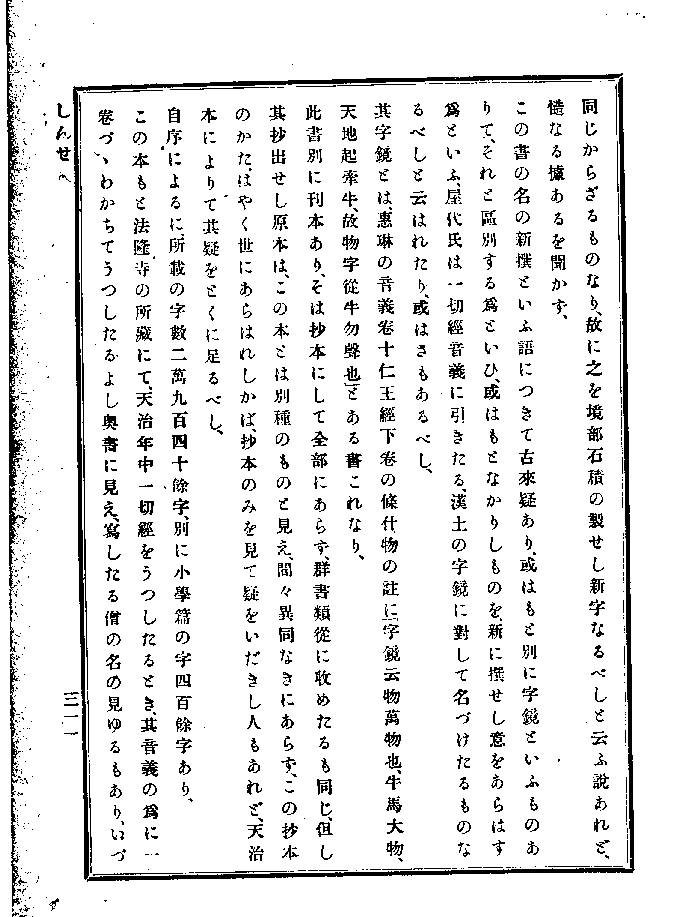 同じからざるものなり、故に之を境部石積の製せし新字なるべしと云ふ説あれど、
慥なる據あるを聞かず、
この書の名の新撰といふ語につきて古來疑あり、或はもと別に字鏡といふものあ
りて、それと區別する爲といひ、或はもとなかりしものを、新に撰せし意をあらはす
爲といふ、屋代氏は一切經音義に引きたる、漢土の字鏡に對して名づけたるものな
るべしと云はれたり、或はさもあるべし、
其字鏡とは、惠琳の音義卷十仁王經下卷の條什物の註に「字鏡云物萬物也、牛馬大物、
天地起牽牛、故物字從牛勿聲也」とある書これなり、
此書別に刊本あり、そは抄本にして全部にあらず、群書類從に收めたるも同じ、但し
其抄出せし原本は、この本とは別種のものと見え、間々異同なきにあらず、この抄本
のかた、はやく世にあらはれしかば、抄本のみを見て疑をいだきし人もあれど、天治
本によりて其疑をとくに足るべし、
自序によるに、所載の字數二萬九百四十餘字、別に小學篇の字四百餘字あり、
この本もと法隆寺の所藏にて、天治年中一切經をうつしたるとき、其音義の爲に一
卷づゝわかちてうつしたるよし奧書に見え、寫したる僧の名の見ゆるもあり、いづ
しんせ
三一一